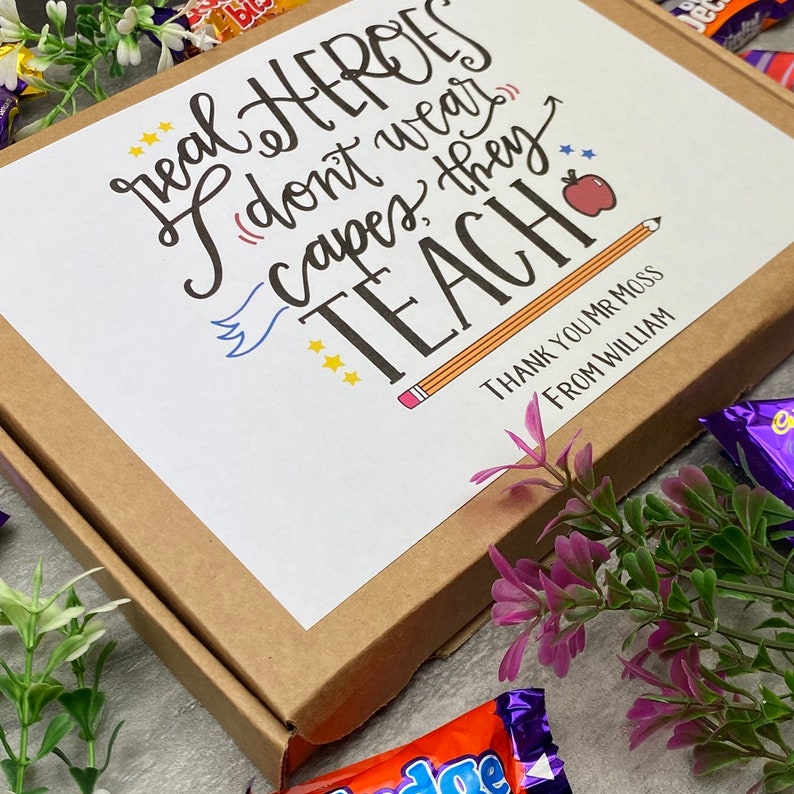 real HEROES
don't wear
capes, they
TEACH
THANK YOU MR MOSS
FROM WILLIAM